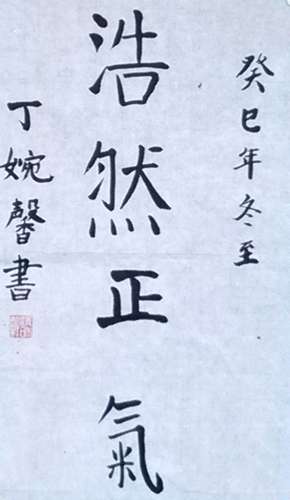 癸巳年冬至
浩然正氣
丁婉馨書